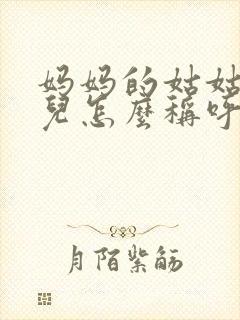 妈妈的姑姑
兒怎麼稱呼
月陌紫觞